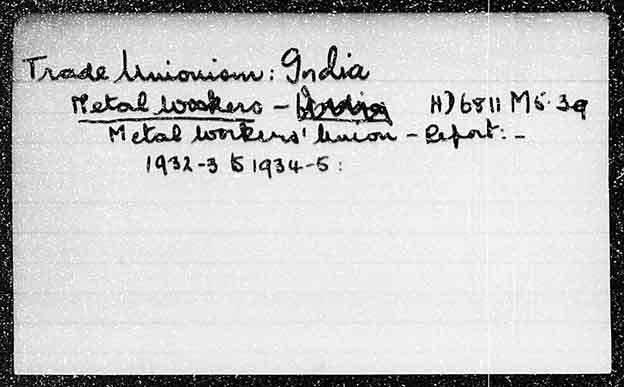 Trade Unionism: India
Metal workers - India HD6811 M5.3q
Metal workers' Union - Report: -
1932-3 to 1934-5: